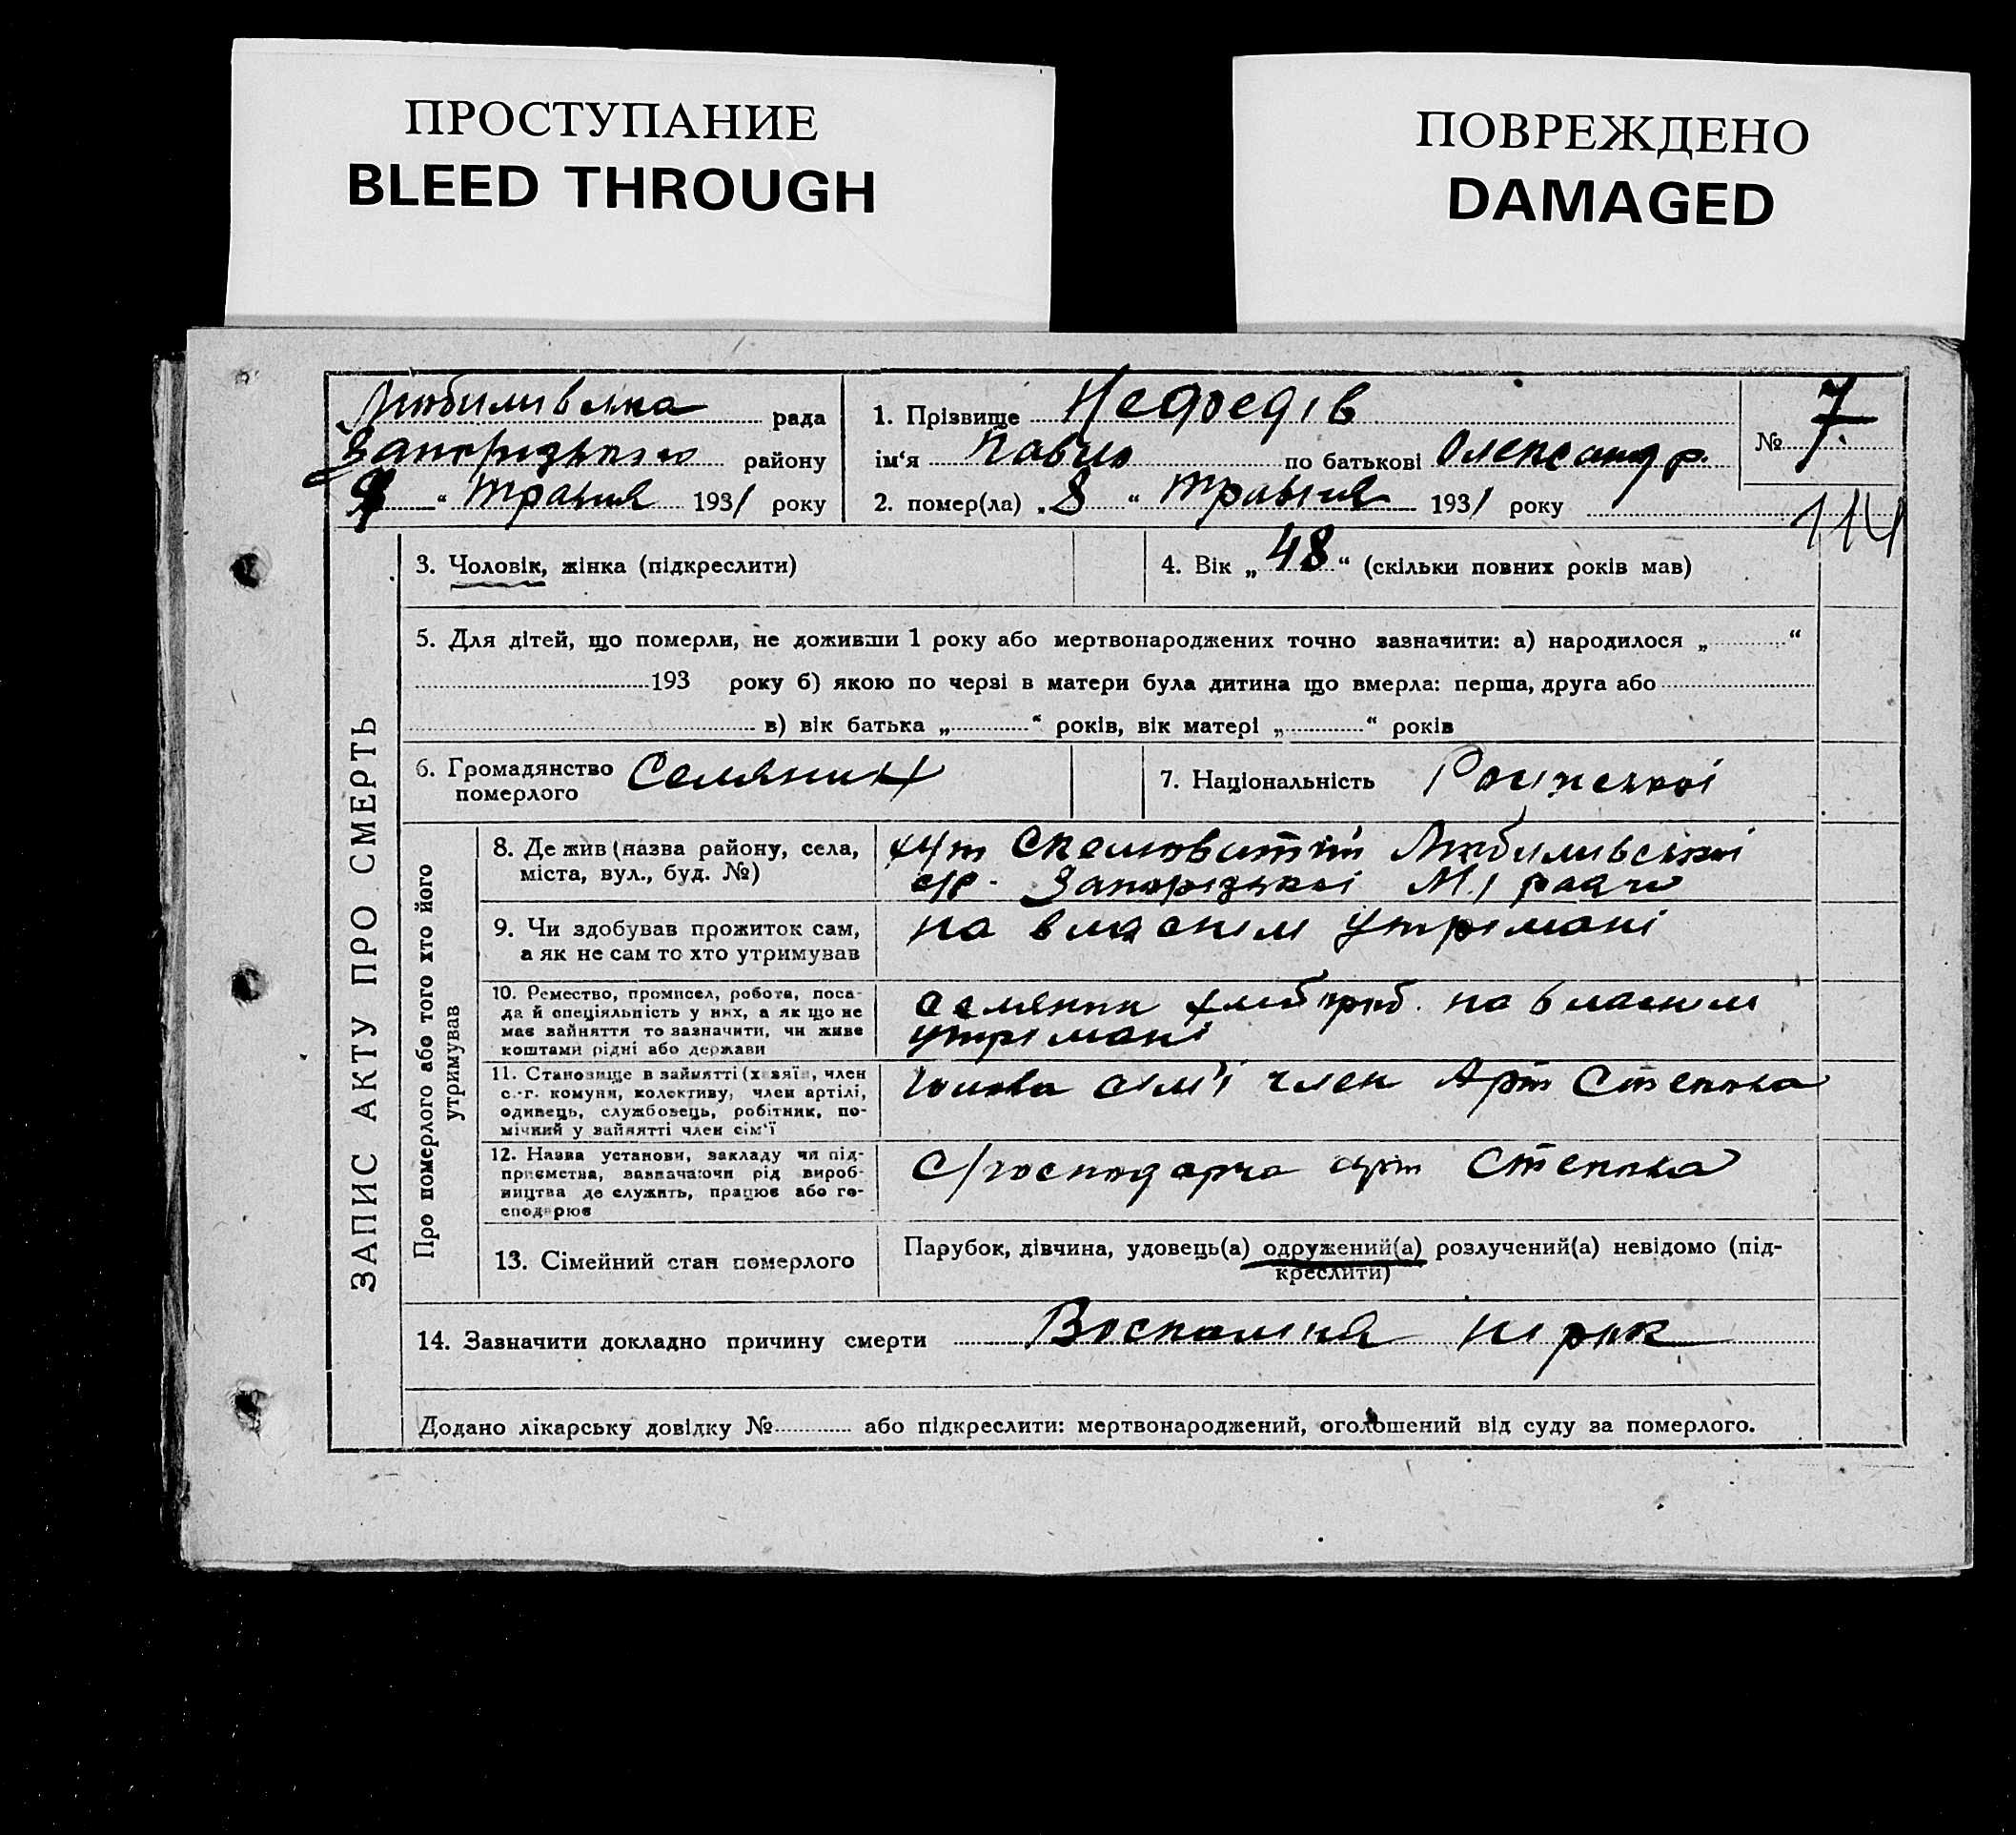 ПРОСТУПАНИЕ
BLEED THROUGH
ПОВРЕЖДЕНО
DAMAGED
рада
Запорізького району
9 “ травня 1931 року
1. Прізвище
ім‘я Павло по батькові Олександр.
2. помер(ла) „ 8 “ травня 1931 року
№ 7.
114
ЗАПИС АКТУ ПРО СМЕРТЬ
3. Чоловік, жінка (підкреслити)
4. Вік „ 48 “ (скільки повних років мав)
5. Для дітей, що померли, не доживши 1 року або мертвонароджених точно зазначити: а) народилося „ “
193 року б) якою по черзі в матери була дитина що вмерла: перша, друга або
в) вік батька „ “ років, вік матері „ “ років
6. Громадянство Селянин
померлого
7. Національність
Про померлого або того хто його
утримував
8. Де жив (назва району, села,
міста, вул., буд. №)
хут
с/р. Запорізької М/ ради
9. Чи здобував прожиток сам,
а як не сам то хто утримував
на власнім утрімані
10. Ремество, промисел, робота, поса-
да й спеціяльність у них, а як що не
має зайняття то зазначити, чи живе
коштами рідні або держави
селянин хлібороб. на власнім
утрімані
11. Становище в зайнятті (хазяїн, член
с.-г. комуни, колективу, член артілі,
одинець, службовець, робітник, по-
мічний у зайнятті член сім‘ї
голова сім'ї член Арт Степова
12. Назва установи, закладу чи під-
приємства, зазначаючи рід вироб-
ництва де служить, працює або го-
сподарює
с/господарча арт Степова
13. Сімейний стан померлого
Парубок, дівчина, удовець(а) одружений(а) розлучений(а) невідомо (під-
креслити)
14. Зазначити докладно причину смерти Воспалінія нірок
Додано лікарську довідку № або підкреслити: мертвонароджений, оголошений від суду за померлого.